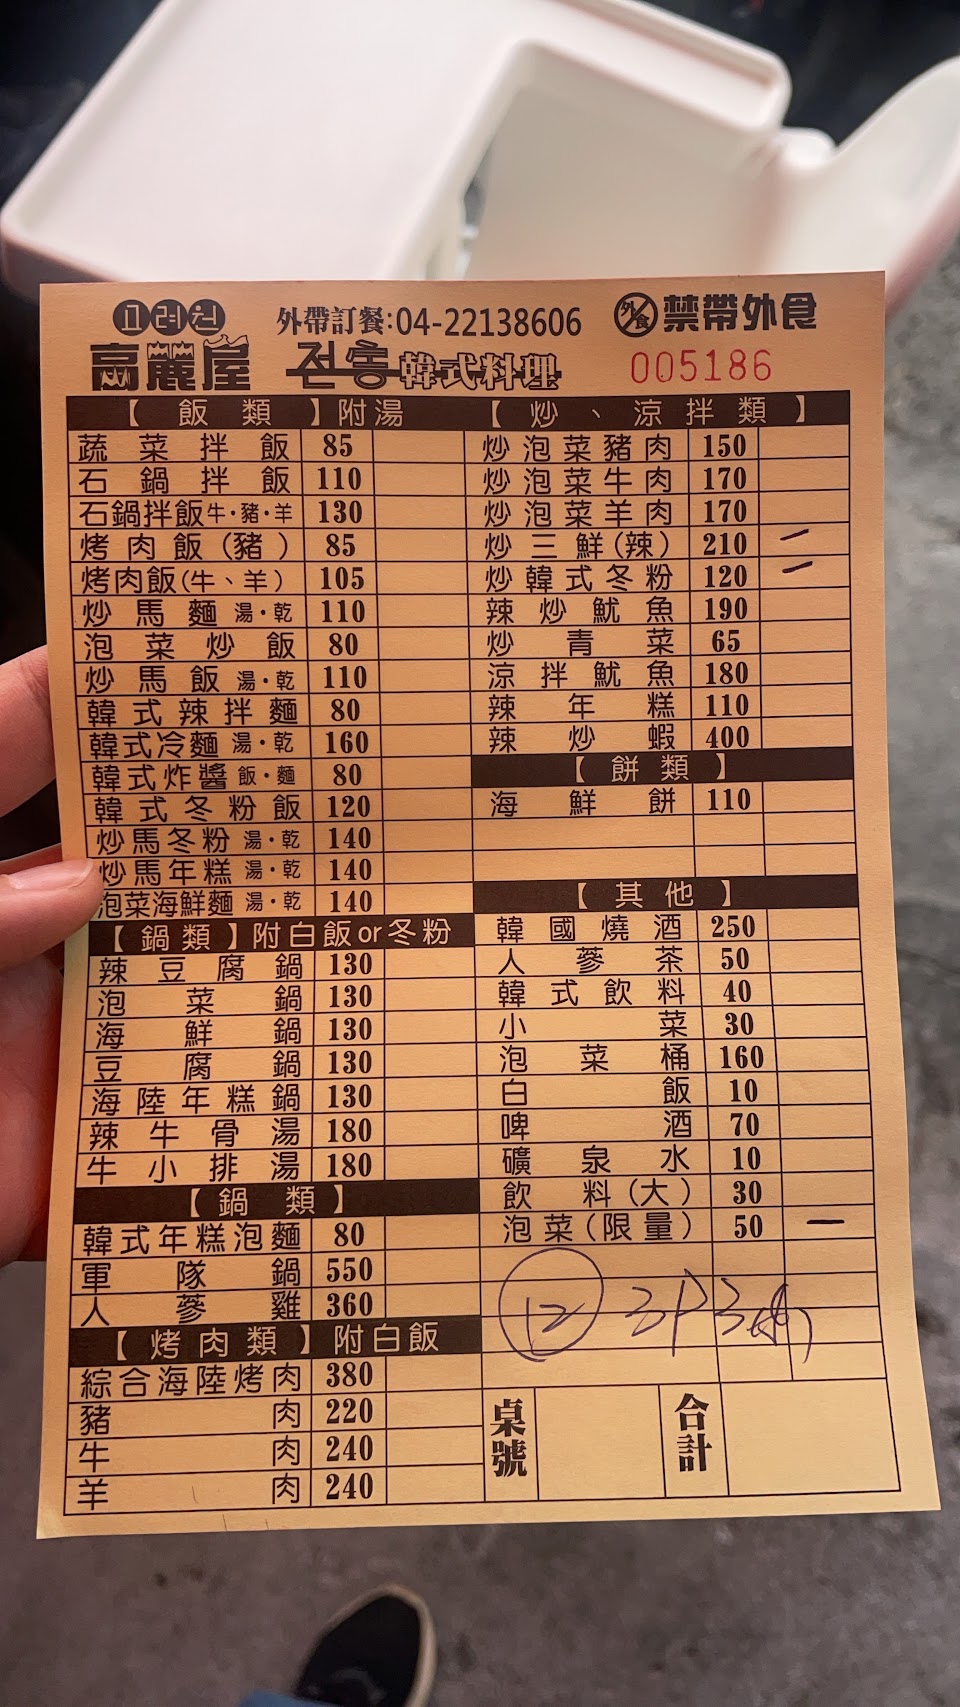 고려전 外帶訂餐:04-22138606 禁帶外食
高麗屋 전홍 韓式料理 005186
【飯類】附湯
蔬菜拌飯 85
石鍋拌飯 110
石鍋拌飯牛·豬·羊 130
烤肉飯(豬) 85
烤肉飯(牛、羊) 105
炒馬麵 湯·乾 110
泡菜炒飯 80
炒馬飯 湯·乾 110
韓式辣拌麵 80
韓式冷麵 湯·乾 160
韓式炸醬 飯·麵 80
韓式冬粉飯 120
炒馬冬粉 湯·乾 140
炒馬年糕 湯·乾 140
泡菜海鮮麵 湯·乾 140
【鍋類】附白飯or冬粉
辣豆腐鍋 130
泡菜鍋 130
海鮮鍋 130
豆腐鍋 130
海陸年糕鍋 130
辣牛骨湯 180
牛小排湯 180
【鍋類】
韓式年糕泡麵 80
軍隊鍋 550
人蔘雞 360
【烤肉類】附白飯
綜合海陸烤肉 380
豬肉 220
牛肉 240
羊肉 240
【炒、涼拌類】
炒泡菜豬肉 150
炒泡菜牛肉 170
炒泡菜羊肉 170
炒三鮮(辣) 210 一
炒韓式冬粉 120 一
辣炒魷魚 190
炒青菜 65
涼拌魷魚 180
辣年糕 110
辣炒蝦 400
【餅類】
海鮮餅 110
【其他】
韓國燒酒 250
人蔘茶 50
韓式飲料 40
小菜 30
泡菜桶 160
白飯 10
啤酒 70
礦泉水 10
飲料(大) 30
泡菜(限量) 50 一
12
桌號 合計